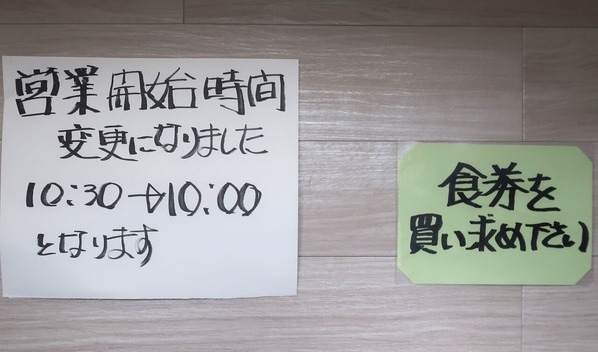 営業開始時間
変更になりました
10:30→10:00
となります
食券を
買い求め下さい